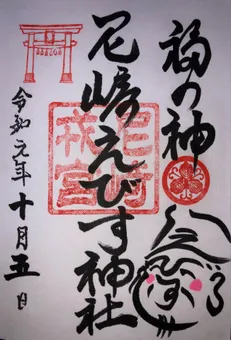 福の神
尼崎えびす神社
尼崎
戎宮
令和元年十月五日